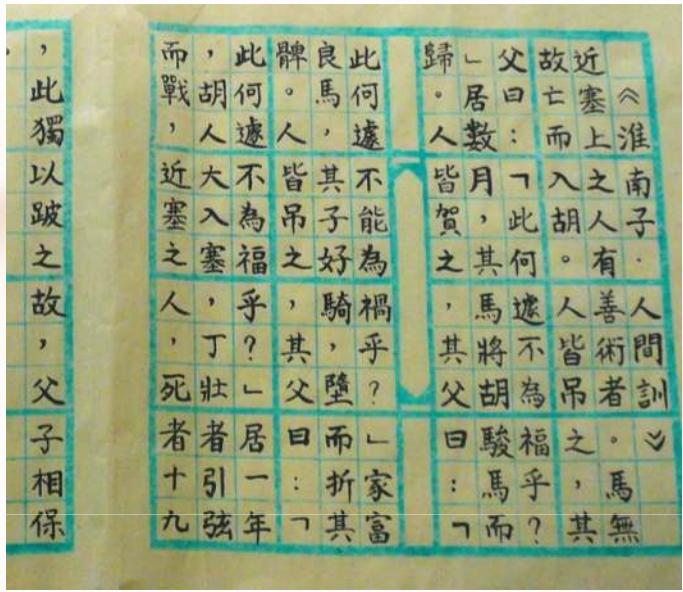 《淮南子·人間訓》
近塞上之人有善術者。馬無
故亡而入胡。人皆吊之,其
父曰:「此何遽不為福乎?
」居數月,其馬將胡駿馬而
歸。人皆賀之,其父曰:「
此何遽不能為禍乎?」家富
良馬,其子好騎,墮而折其
髀。人皆吊之,其父曰:「
此何遽不為福乎?」居一年
,胡人大入塞,丁壯者引弦
而戰,近塞之人,死者十九
,此獨以跛之故,父子相保